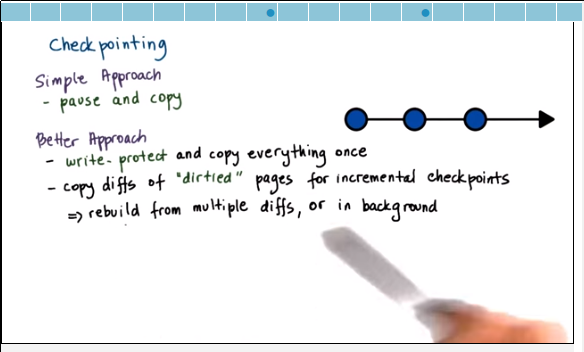 Checkpointing
Simple Approach
- pause and copy
Better Approach
- write-protect and copy everything once
- copy diffs of "dirtied" pages for incremental checkpoints
⇒ rebuild from multiple diffs, or in background